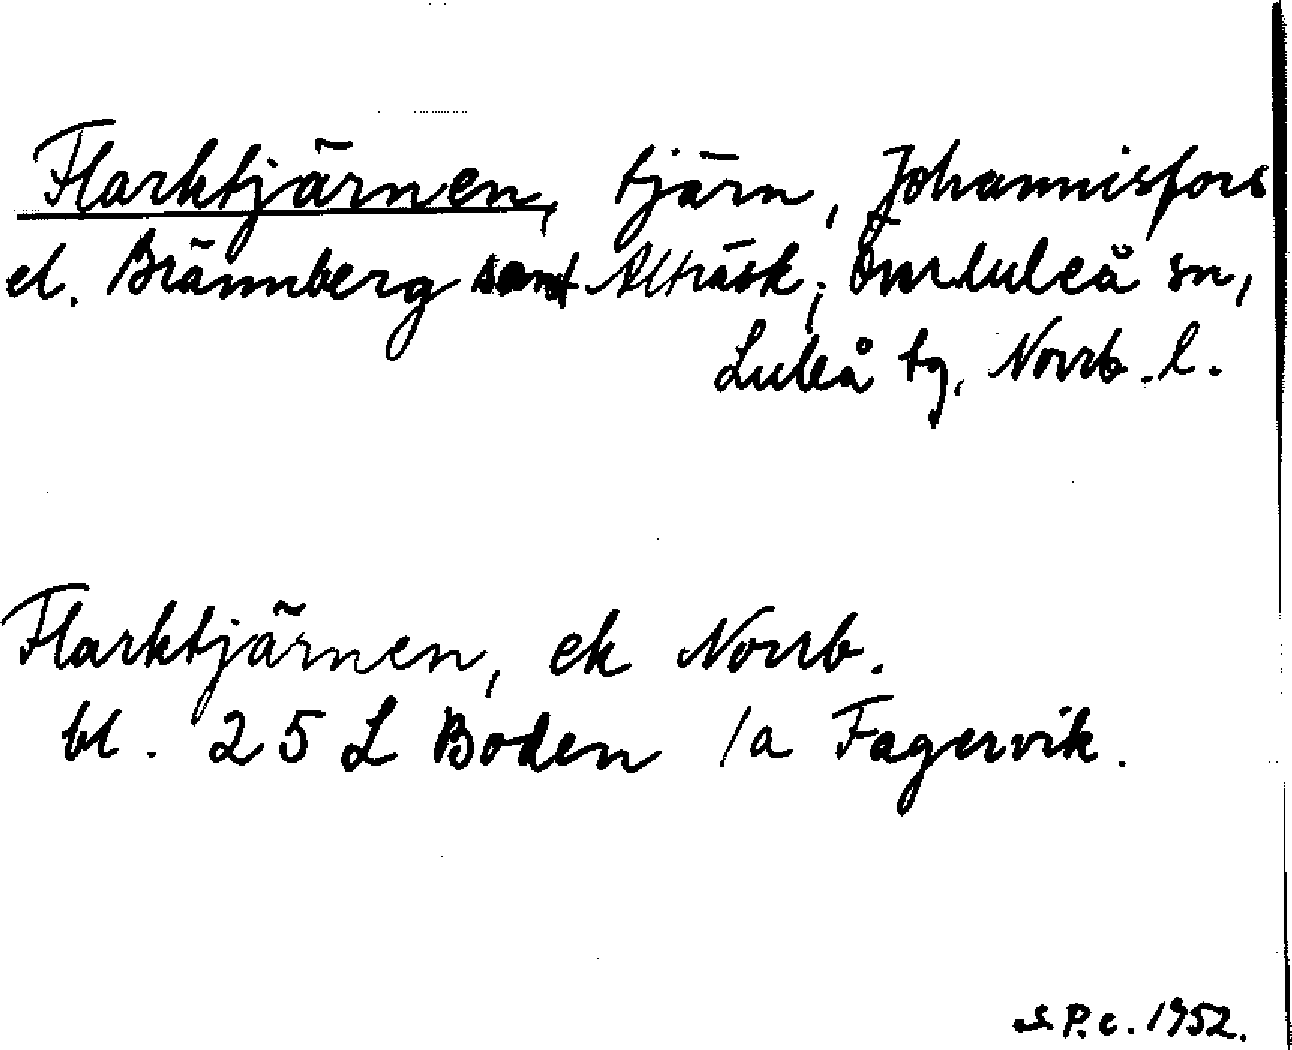 Flarktjärnen, tjärn, Johannisfors
el. Brännberg samt Alträsk, Överluleå sn,
Luleå tg, Norrb. l.
Flarktjärnen, ek Norrb.
bl. 25 L Boden /a Fagervik.
1952.